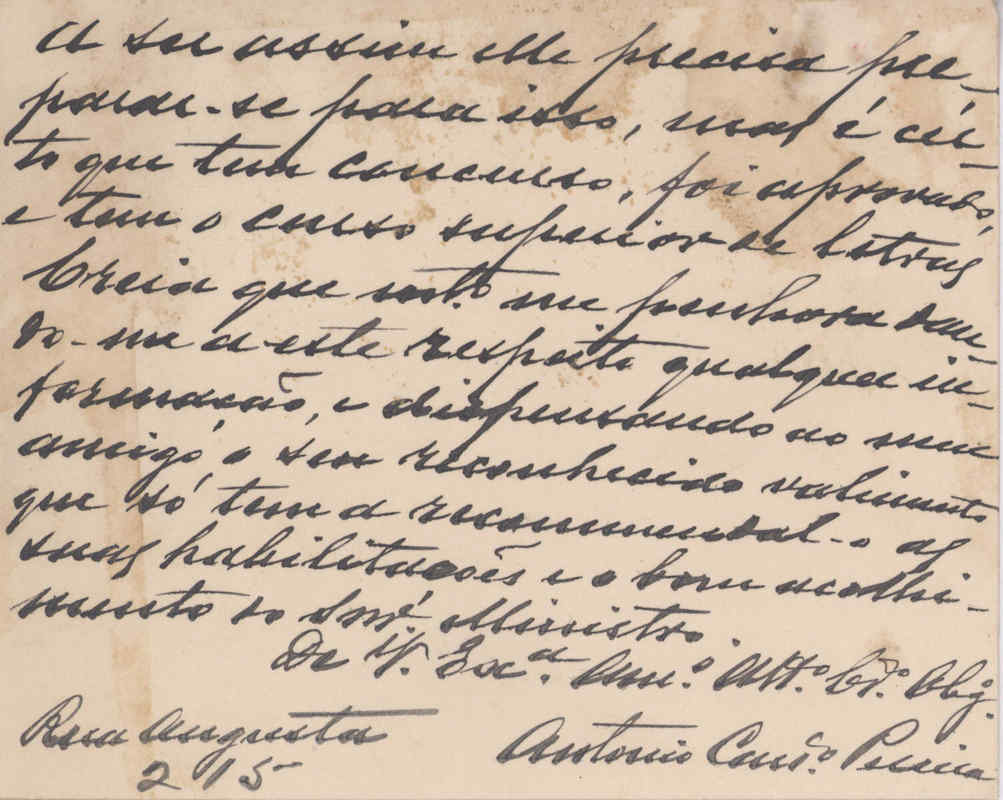 A ser assim elle precisa pre-
parar-se para isso, mas é cer-
to que tem concurso, foi aprovado,
e tem o curso superior de letras
Creia que mt.º me penhora dan-
do-me a este respeito qualquer in-
formação, e dispensando ao meu
amigo, o seu reconhecido valimento
que só tem a recommendal-o as
suas habilitações e o bom acolhi-
mento do Snr. Ministro.
De V. Exc.ª Am.º Att.º Cr.º Obg.º
Rua Augusta
215
Antonio Pereira